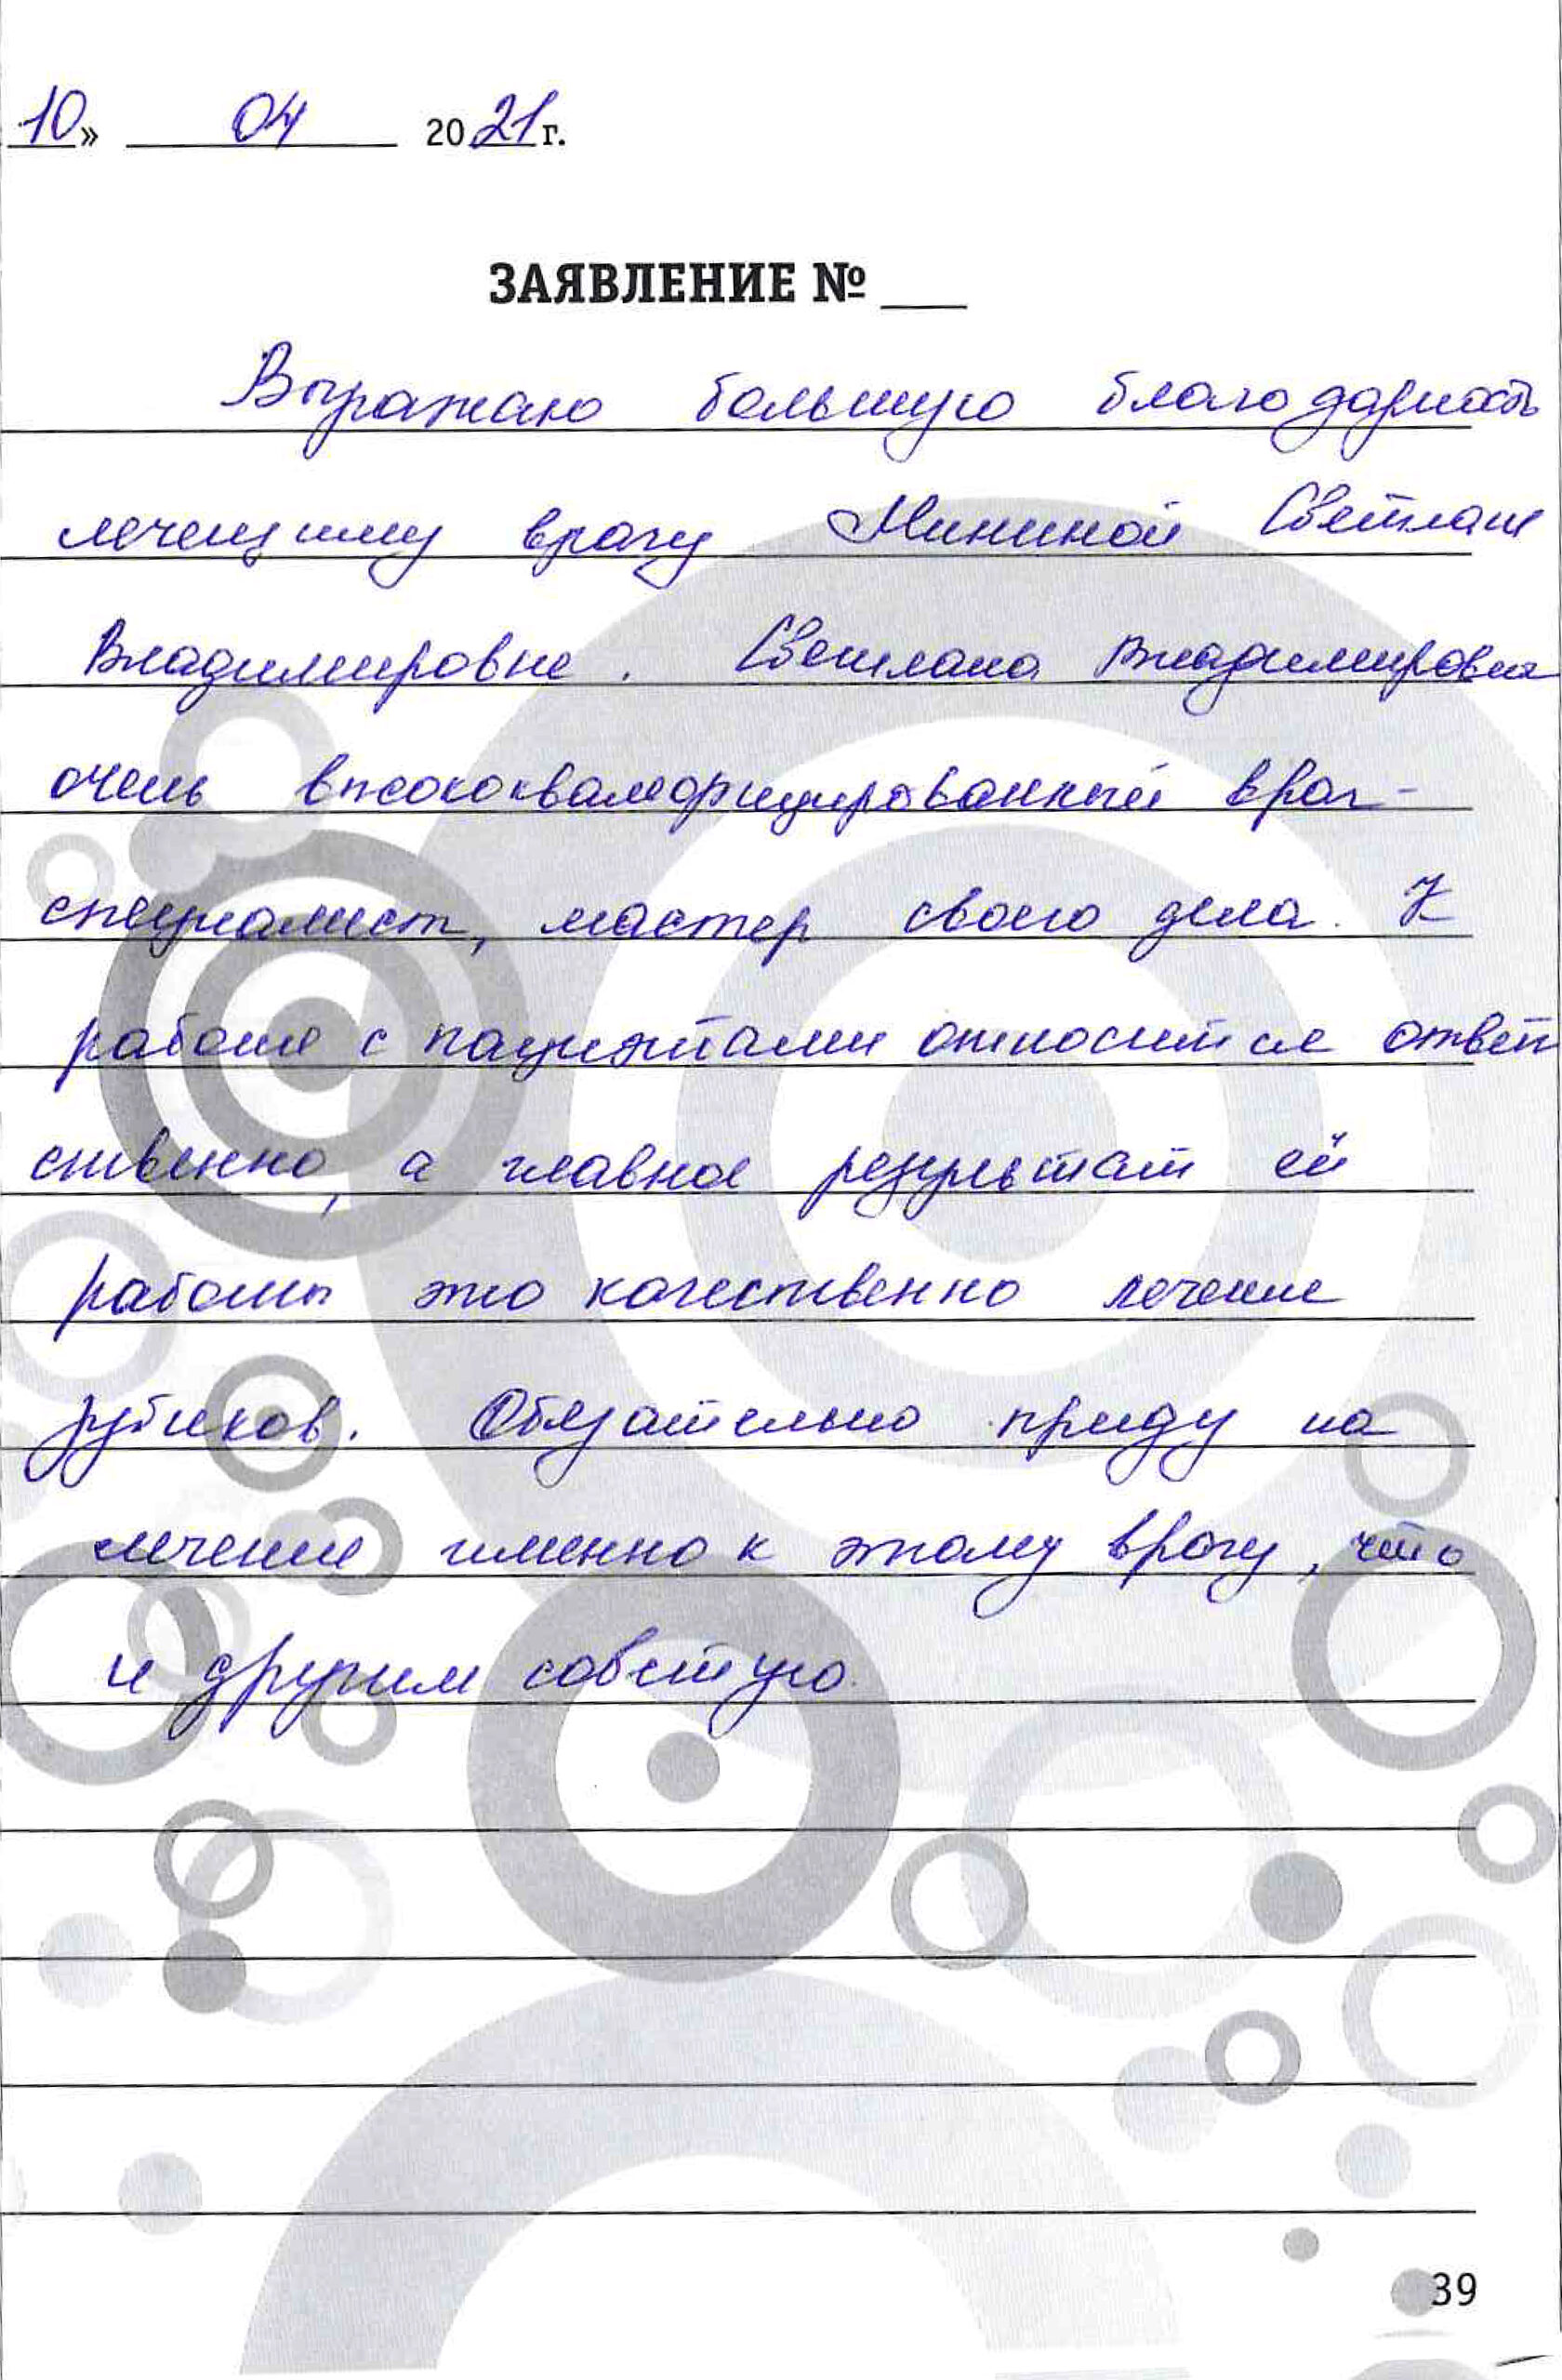 10» 04 2021 г.
ЗАЯВЛЕНИЕ № ___
Выражаю большую благодарность
лечещиму врачу Мининой Светлане
Владимировне. Светлана Владимировна
очень высококвалифицированный врач-
специалист, мастер своего дела. К
работе с пациентами относится ответ
ственно, а главное результат её
работы это качественно лечение
зубиков. Обязательно приду на
лечение именно к этому врачу, что
и другим советую.
39